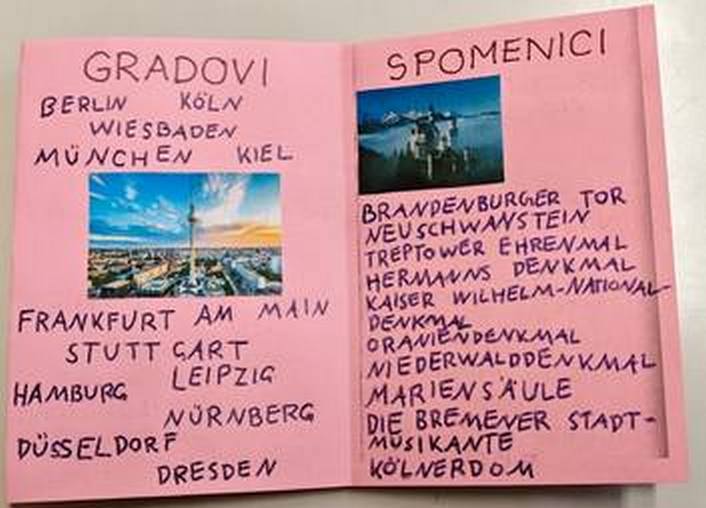 GRADOVI
BERLIN KÖLN
WIESBADEN
MÜNCHEN KIEL
FRANKFURT AM MAIN
STUTTGART
LEIPZIG
HAMBURG
NÜRNBERG
DÜSSELDORF
DRESDEN
SPOMENICI
BRANDENBURGER TOR
NEUSCHWANSTEIN
TREPTOWER EHRENMAL
HERMANNS DENKMAL
KAISER WILHELM-NATIONAL-
DENKMAL
ORANIENDENKMAL
NIEDERWALDDENKMAL
MARIENSÄULE
DIE BREMENER STADT-
MUSIKANTE
KÖLNERDOM